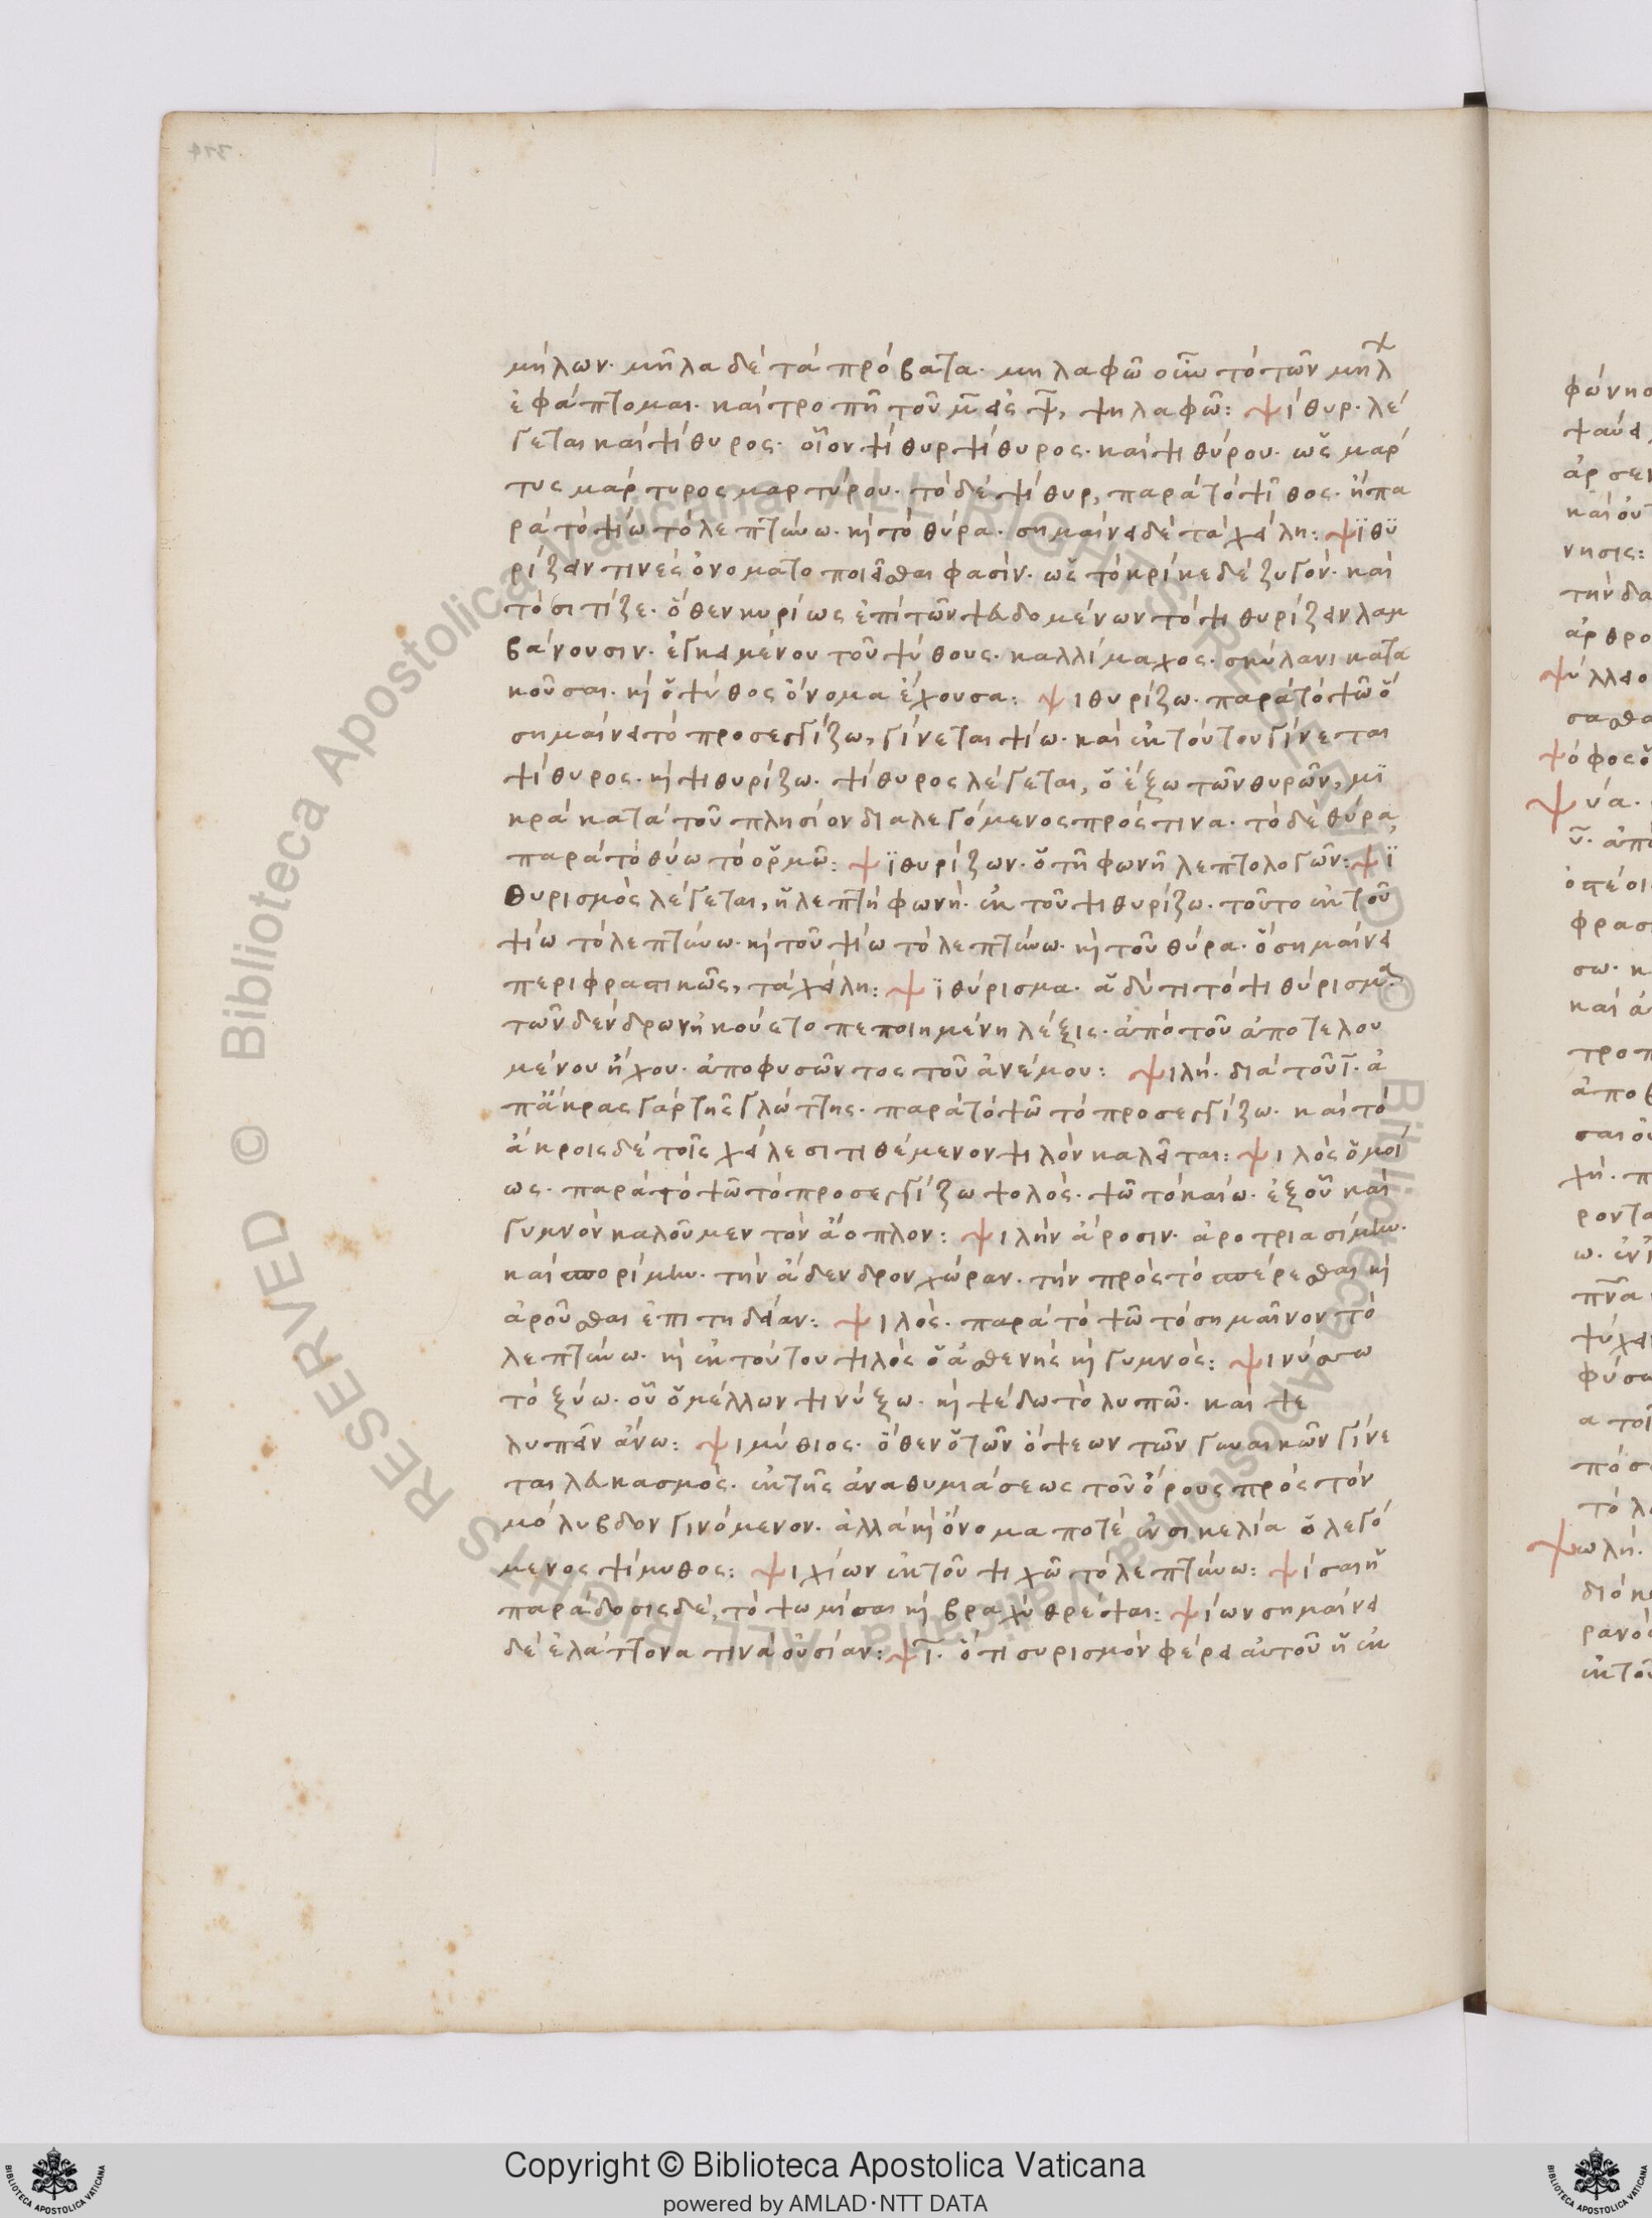 μήλων· μῆλα δὲ τὰ πρόβατα· μηλαφῶ οὖν τὸ τῶν μήλ
ἐφάπτομαι· καὶ τροπῇ τοῦ μ̅ εἰς ψ̅, ψηλαφῶ: ψίθυρ· λέ
γεται καὶ ψίθυρος· οἷον ψίθυρ ψίθυρος· καὶ ψιθύρου· ὡς μάρ
τυς μάρτυρος μαρτύρου· τὸ δὲ ψίθυρ, παρὰ τὸ ψῖθος· ἢ πα
ρὰ τὸ ψίω τὸ λεπτύνω· κὶ τὸ θύρα· σημαίνει δὲ τὰ χείλη: ψϊθϋ
ρίζειν τινὲς ὀνοματοποιεῖσθαι φασίν· ὡς τὸ κρίκε δὲ ζυγόν· καὶ
τὸ σιτίζε· ὅθεν κυρίως ἐπὶ τῶν ψευδομένων τὸ ψιθυρίζειν λαμ
βάνουσιν· ἐγκειμένου τοῦ ψύθους· καλλίμαχος· σκύλανι κατα
κοῦσαι· κὶ ὃ ψύθος ὄνομα ἔχουσα: ψιθυρίζω· παρὰ τὸ ψῶ ὃ
σημαίνει τὸ προσεγγίζω, γίνεται ψίω· καὶ ἐκ τούτου γίνεται
ψίθυρος· κὶ ψιθυρίζω· ψίθυρος λέγεται, ὁ ἔξω τῶν θυρῶν, μϊ
κρὰ κατὰ τοῦ πλησίον διαλεγόμενος πρός τινα· τὸ δὲ θύρα,
παρὰ τὸ θύω τὸ ὁρμῶ: ψϊθυρίζων· ὁ τῇ φωνῇ λεπτολογῶν: ψϊ
θυρισμὸς λέγεται, ἡ λεπτὴ φωνή· ἐκ τοῦ ψιθυρίζω· τοῦτο ἐκ τοῦ
ψίω τὸ λεπτύνω· κὶ τοῦ ψίω τὸ λεπτύνω· κὶ τοῦ θύρα· ὃ σημαίνει
περιφραστικῶς, τὰ χείλη: ψϊθύρισμα· ἁδύ τι τὸ ψιθύρισμα
τῶν δένδρων ἠκούετο πεποιημένη λέξις· ἀπὸ τοῦ ἀποτελου
μένου ἤχου· ἀποφυσῶντος τοῦ ἀνέμου: ψιλή· διὰ τοῦ ῑ· ἀ
π' ἄκρας γὰρ τῆς γλώττης· παρὰ τὸ ψῶ τὸ προσεγγίζω· καὶ τὸ
ἄκροις δὲ τοῖς χείλεσι τιθέμενον ψιλὸν καλεῖται: ψιλὸς ὁμοί
ως· παρὰ τὸ ψῶ τὸ προσεγγίζω ψολός· ψῶ τὸ καίω· ἐξ οὗ καὶ
γυμνὸν καλοῦμεν τὸν ἄοπλον: ψιλὴν ἄροσιν· ἀροτριασίμην·
καὶ σπορίμην· τὴν ἄδενδρον χώραν· τὴν πρὸς τὸ σπέρεσθαι κὶ
ἀροῦσθαι ἐπιτηδείαν: ψιλός· παρὰ τὸ ψῶ τὸ σημαῖνον τὸ
λεπτύνω· κὶ ἐκ τούτου ψιλὸς ὁ ἀσθενὴς κὶ γυμνός: ψινύσσω
τὸ ξύω· οὗ ὁ μέλλων ψινύξω· κὶ ψέδω τὸ λυπῶ· καὶ ψε
λυπεῖν ἄνω: ψιμύθιος· ὅθεν ὁ τῶν ὄψεων τῶν γυναικῶν γίνε
ται λευκασμός· ἐκ τῆς ἀναθυμιάσεως τοῦ ὄρους πρὸς τὸν
μόλυβδον γινόμενον· ἀλλὰ κὶ ὄνομα ποτὲ ἐν σικελία ὁ λεγό
μενος ψίμυθος: ψιχίων ἐκ τοῦ ψιχῶ τὸ λεπτύνω: ψίσαι ἡ
παράδοσις δὲ, τὸ ψωμίσαι κὶ βραχὺ θρέψαι: ψίων σημαίνει
δὲ ἐλάττονα τινὰ οὐσίαν: ψῑ· ὅτι συρισμὸν φέρει αὐτοῦ ἡ ἐκ
Copyright © Biblioteca Apostolica Vaticana
powered by AMLAD·NTT DATA